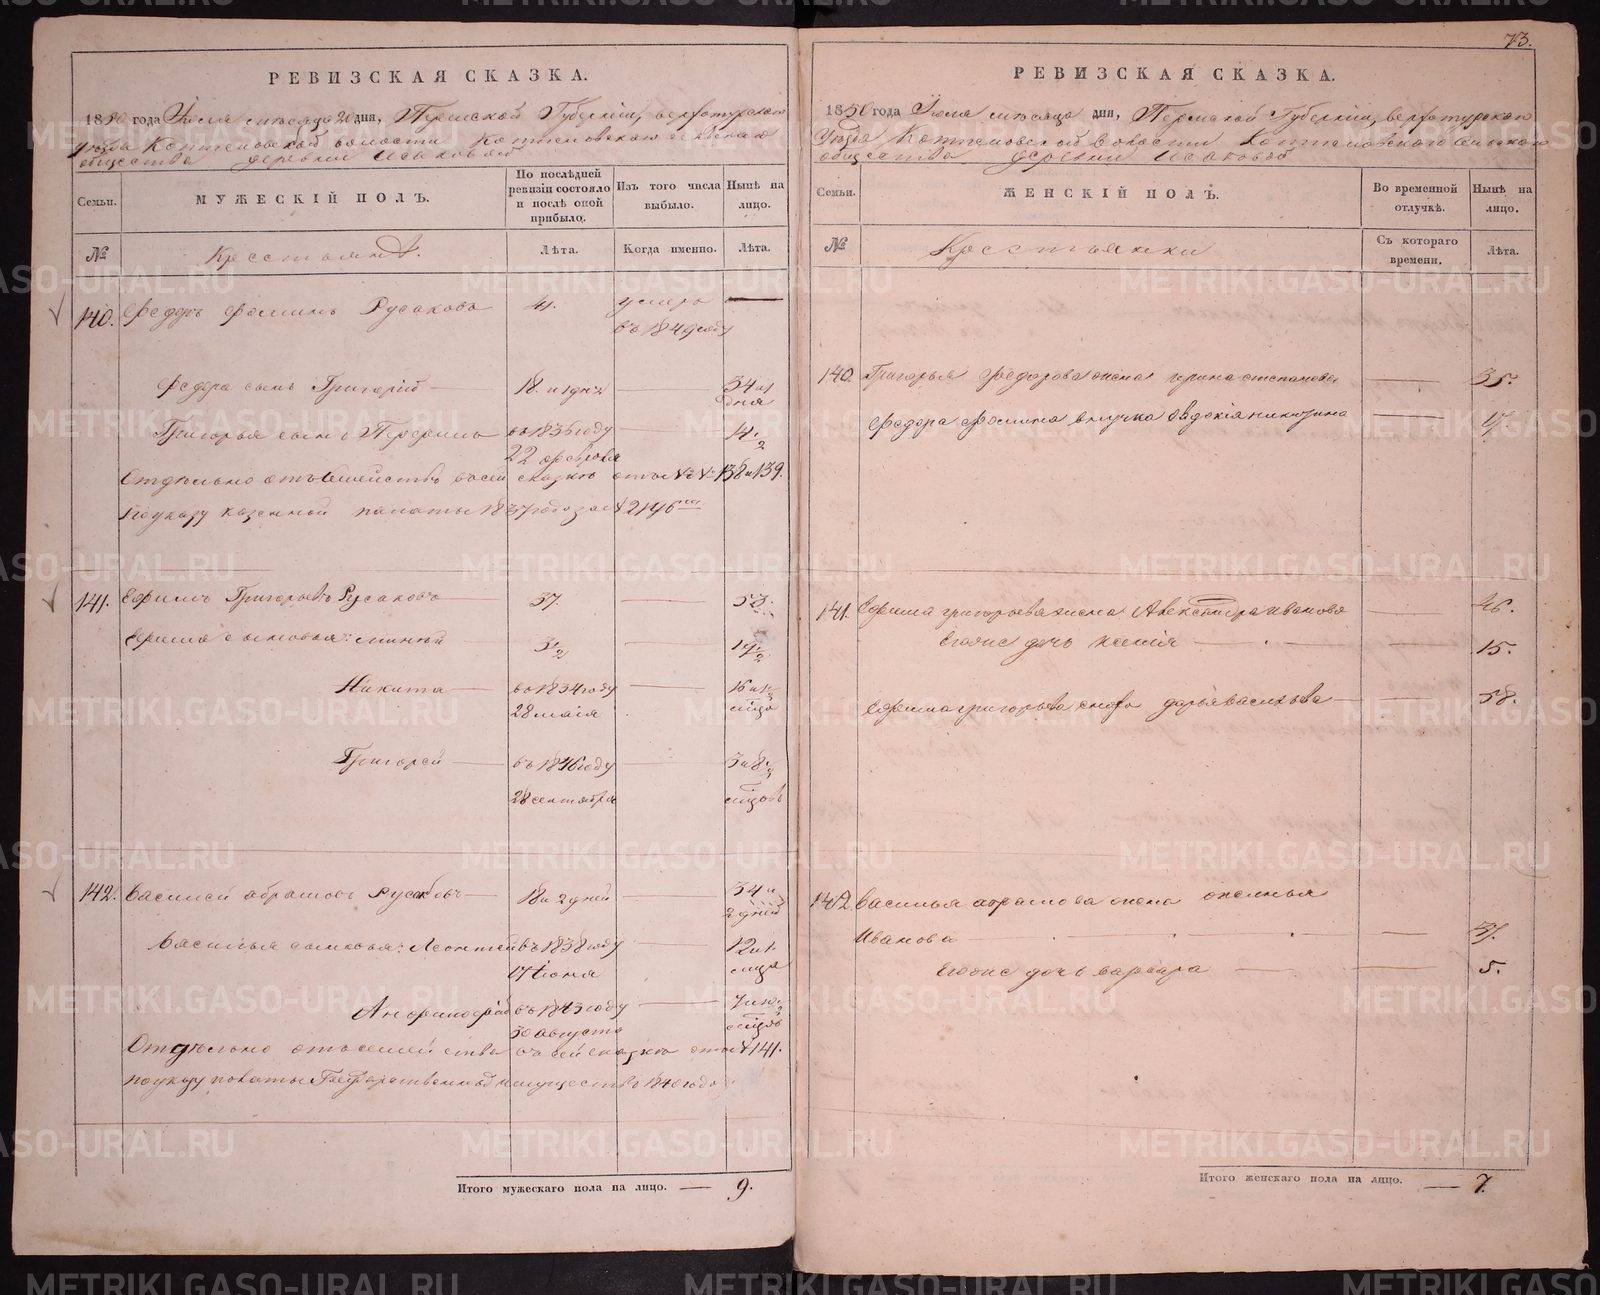 РЕВИЗСКАЯ СКАЗКА.
1850 года Июля месяца 20 дня, Пермской Губернии, верхотурскаго
уезда Коптеловской волости Коптеловскаго сельскаго
общества деревни Исаковой
Семьи.
МУЖЕСКІЙ ПОЛЪ.
По послѣдней ревизіи состояло и послѣ оной прибыло.
Изъ того числа выбыло.
Нынѣ на лицо.
№
Крестьяне.
Лѣта.
Когда именно.
Лѣта.
140. Федоръ Фоминъ Русаковъ умеръ
въ 1849 году
Федора сынъ Григорій 18. и 1 дня 34 и 1
дня
Григорья сынъ въ 1836 году 14. 1/2
22 февраля
Отдельно отъ семействъ въ сей сказке отъ №№ 138 и 139.
По указу казенной палаты 1837 года за № 2196
141. Ефимъ Григорьевъ Русаковъ 37. 53.
Ефима сыновья: 3 1/2 19 1/2
Никита въ 1834 году 16 и 1
28 маія
Григорей въ 1846 году 3 и 8
28 сентября месяцовъ
142. Василей абрамовъ Русаковъ 18 и 2 дней 34 и
2 дней
Василья сыновья: Леонтей въ 1838 году 12 и 1
17 Іюня
въ 1843 году
30 августа
Отдельно отъ семейства въ сей сказке отъ № 141.
по указу палаты Государственныхъ имуществъ 1840 года
Итого мужескаго пола на лицо. — 9.
73.
РЕВИЗСКАЯ СКАЗКА.
1850 года Июля месяца дня, Пермской Губернии, верхотурскаго
Уезда Коптеловской волости Коптеловскаго сельскаго
общества деревни Исаковой
Семьи.
ЖЕНСКІЙ ПОЛЪ.
Во временной отлучкѣ.
Нынѣ на лицо.
№
Крестьянки
Съ котораго времени.
Лѣта.
140. Григорья Федорова жена ирина степанова 35.
Федора Фомина внучка Евдокія 17.
141. Ефима григорьева жена Александра иванова 46.
Егоже дочь ксенія 15.
Ефима григорьева сноха дарья васильева 58.
142. Василья абрамова жена
Иванова 37.
Егоже дочь варвара 5.
Итого женскаго пола на лицо. — 7.
METRIKI.GASO-URAL.RU